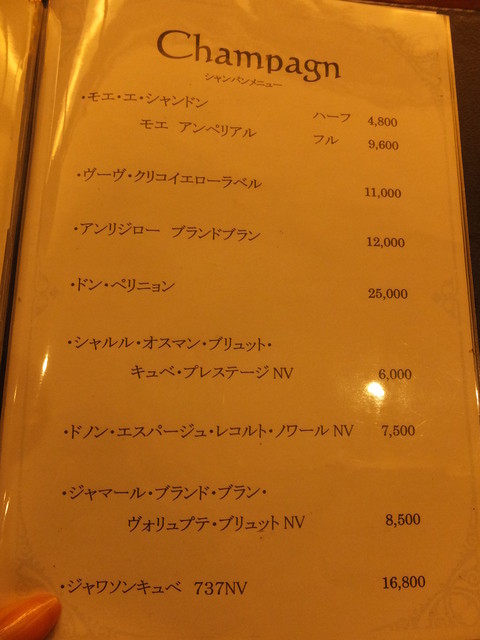 Champagn
シャンパンメニュー
・モエ・エ・シャンドン
ハーフ 4,800
モエ アンペリアル
フル 9,600
・ヴーヴ・クリコイエローラベル 11,000
・アンリジロー ブランドブラン 12,000
・ドン・ペリニョン 25,000
・シャルル・オスマン・ブリュット・
キュベ・プレステージNV 6,000
・ドノン・エスパージュ・レコルト・ノワールNV 7,500
・ジャマール・ブランド・ブラン・
ヴォリュプテ・ブリュットNV 8,500
・ジャワソンキュベ 737NV 16,800